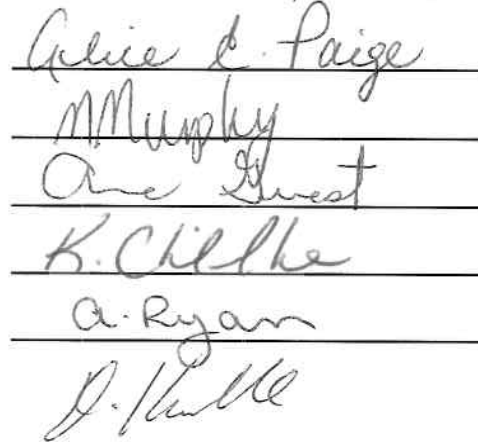 Alice E. Paige
M Murphy
One Guest
K.
A. Ryan
D.